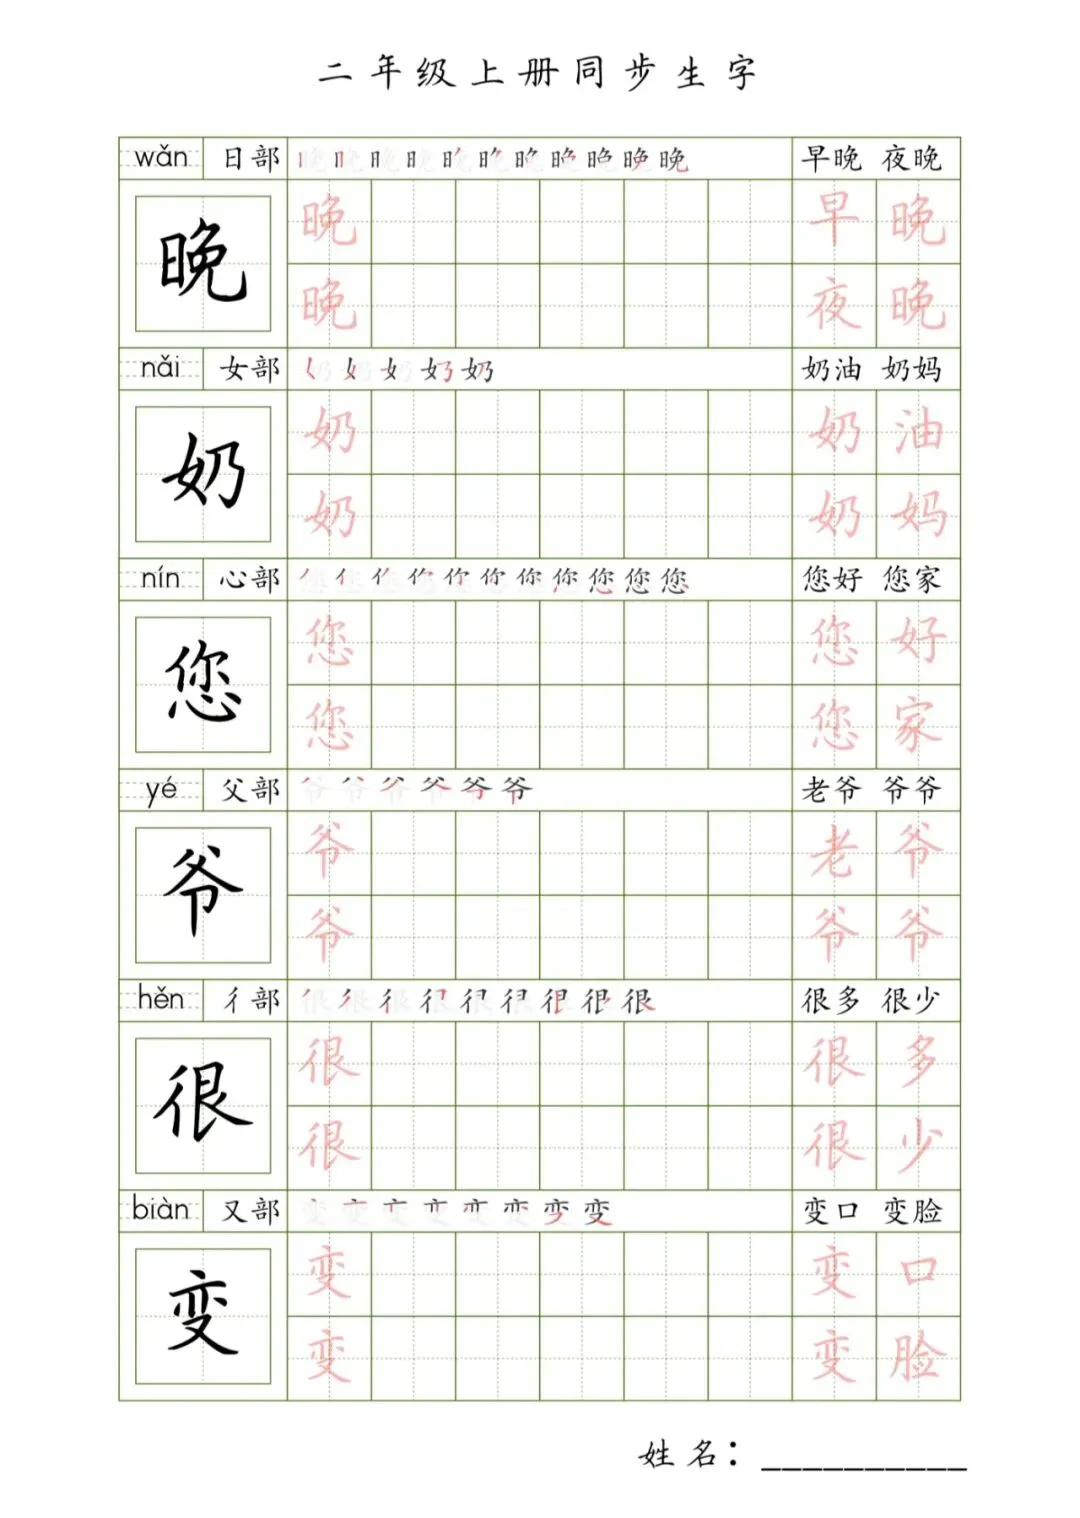 二年级上册同步生字
wǎn 日部 晚 早晚 夜晚
晚 晚 早晚
晚 夜晚
nǎi 女部 奶 奶油 奶妈
奶 奶 奶油
奶 奶妈
nín 心部 您 您好 您家
您 您 您好
您 您家
yé 父部 爷 老爷 爷爷
爷 爷 老爷
爷 爷爷
hěn 彳部 很 很多 很少
很 很 很多
很 很少
biàn 又部 变 变口 变脸
变 变 变口
变 变脸
姓名：__________